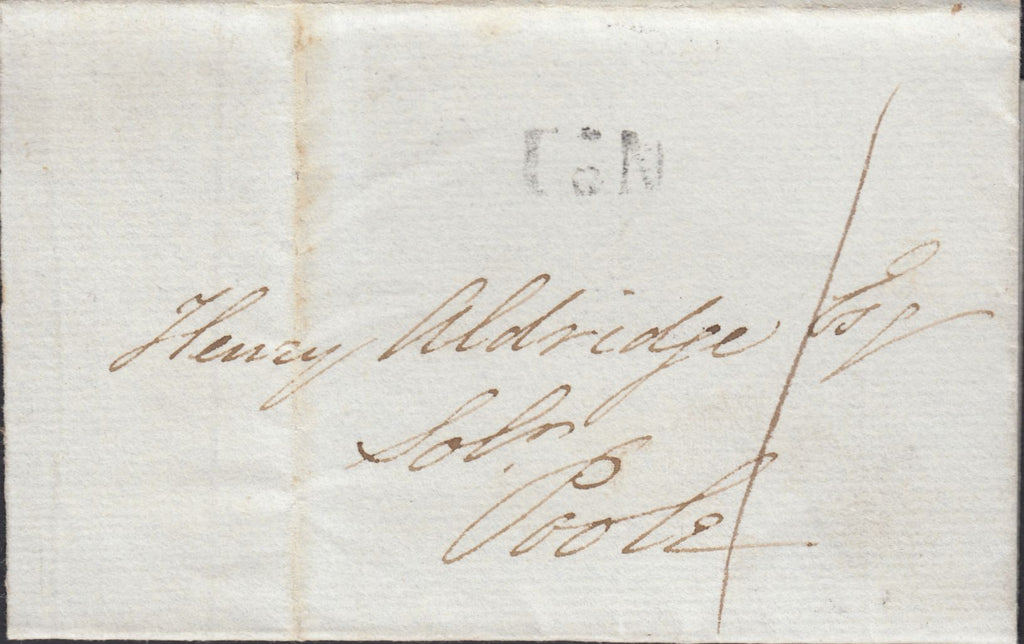 Henry Aldridge Esq
Solr.
Poole